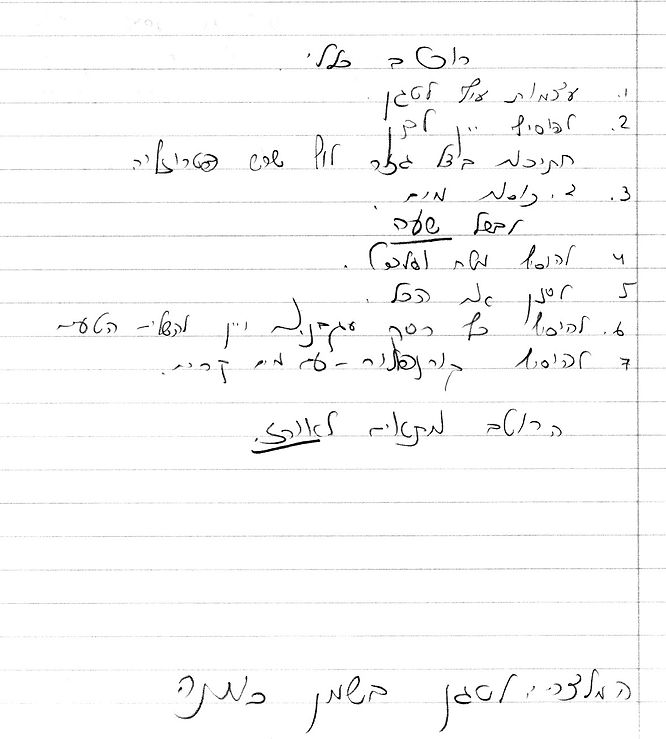 רוטב כללי.
1. עצמות עוף לטגן
2. להוסיף יין לבן
חתיכת בצל גזר לוף שרש פטרוזליה
3. 2 כוסות מים.
לבשל שעה
4 להוסיף מלח
5 לסנן את הכל.
6. להוסיף כף רסק עגבניות ויין להשלי- הטע-
7 להוסיף קורנפלור - עם מים קרים.
הרוטב מתאים לאורז.
המלצה: לטגן בשמן כמהה